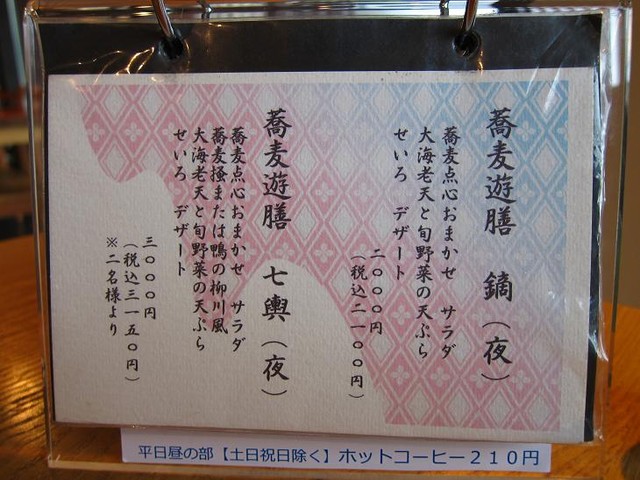 蕎麦遊膳　鏑（夜）
蕎麦点心おまかせ　サラダ
大海老天と旬野菜の天ぷら
せいろ　デザート
二〇〇〇円
（税込二一〇〇円）
蕎麦遊膳　七輿（夜）
蕎麦点心おまかせ　サラダ
蕎麦掻または鴨の柳川風
大海老天と旬野菜の天ぷら
せいろ　デザート
三〇〇〇円
（税込三一五〇円）
※二名様より
平日昼の部【土日祝日除く】ホットコーヒー２１０円